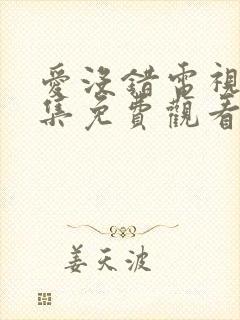 愛沒錯電視
集免費觀看
姜天波